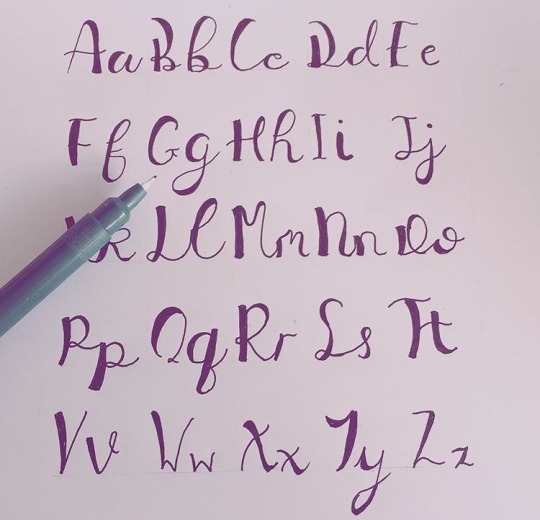 Aa Bb Cc Dd Ee
Ff Gg Hh Ii Jj
k Ll Mm Nn Oo
Pp Qq Rr Ss Tt
Vv Ww Xx Yy Zz